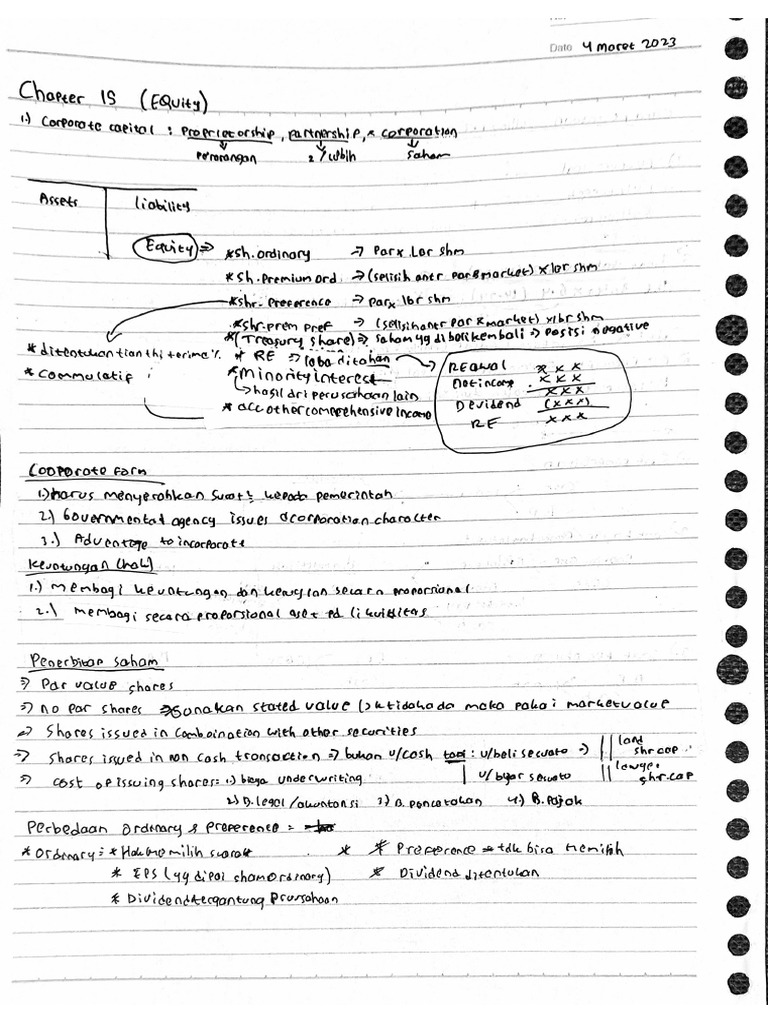 Date 4 Maret 2023
Chapter 15 (Equity)
1.) Corporate capital : Proprietorship, partnership, & corporation
perorangan 2/lebih saham
Assets liability
Equity => *sh. ordinary -> Par x lbr shm
*sh. Premium ord -> (selisih antr par & market) x lbr shm
*shr. Preference -> par x lbr shm
*shr. prem pref -> (selisih antr par & market) x lbr shm
*(Treasury share) => saham yg dibeli kembali => posisi negative
* RE => laba ditahan
*minority interest
↳ hasil dri perusahaan lain
*acc other comprehensive income
*ditentukan thn thi terima %
*Commulatif
RE awal xxx
Net income xxx
xxx
Devidend (xxx)
RE xxx
Corporate form
1.) harus menyerahkan surat² kepada pemerintah
2.) Governmental agency issues a corporation character
3.) Advantage to incorporate
Keuntungan (hak)
1.) membagi keuntungan dan kerugian secara proporsional
2.) membagi secara proporsional aset pd likuiditas
Penerbitan saham
=> Par value shares
=> no par shares => Gunakan stated value (>k tidak ada maka pakai market value
=> Shares issued in Comboination with other securities
=> Shares issued in non cash transaction => bukan u/cash tapi : u/beli sesuatu => || land
shr.cap
| u/byar sesuatu || lawyer
shr.cap
=> Cost of issuing shares = 1.) biaya underwriting
2.) B. legal/akuntansi 3.) B. pencatatan 4.) B. Pajak
Perbedaan ordinary & Preference =
* Ordinary = * Hak memilih suara * * Preference => tdk bisa memilih
* EPS (yg dipai sham ordinary) * Dividend ditentukan
* Dividend tergantung Perusahaan